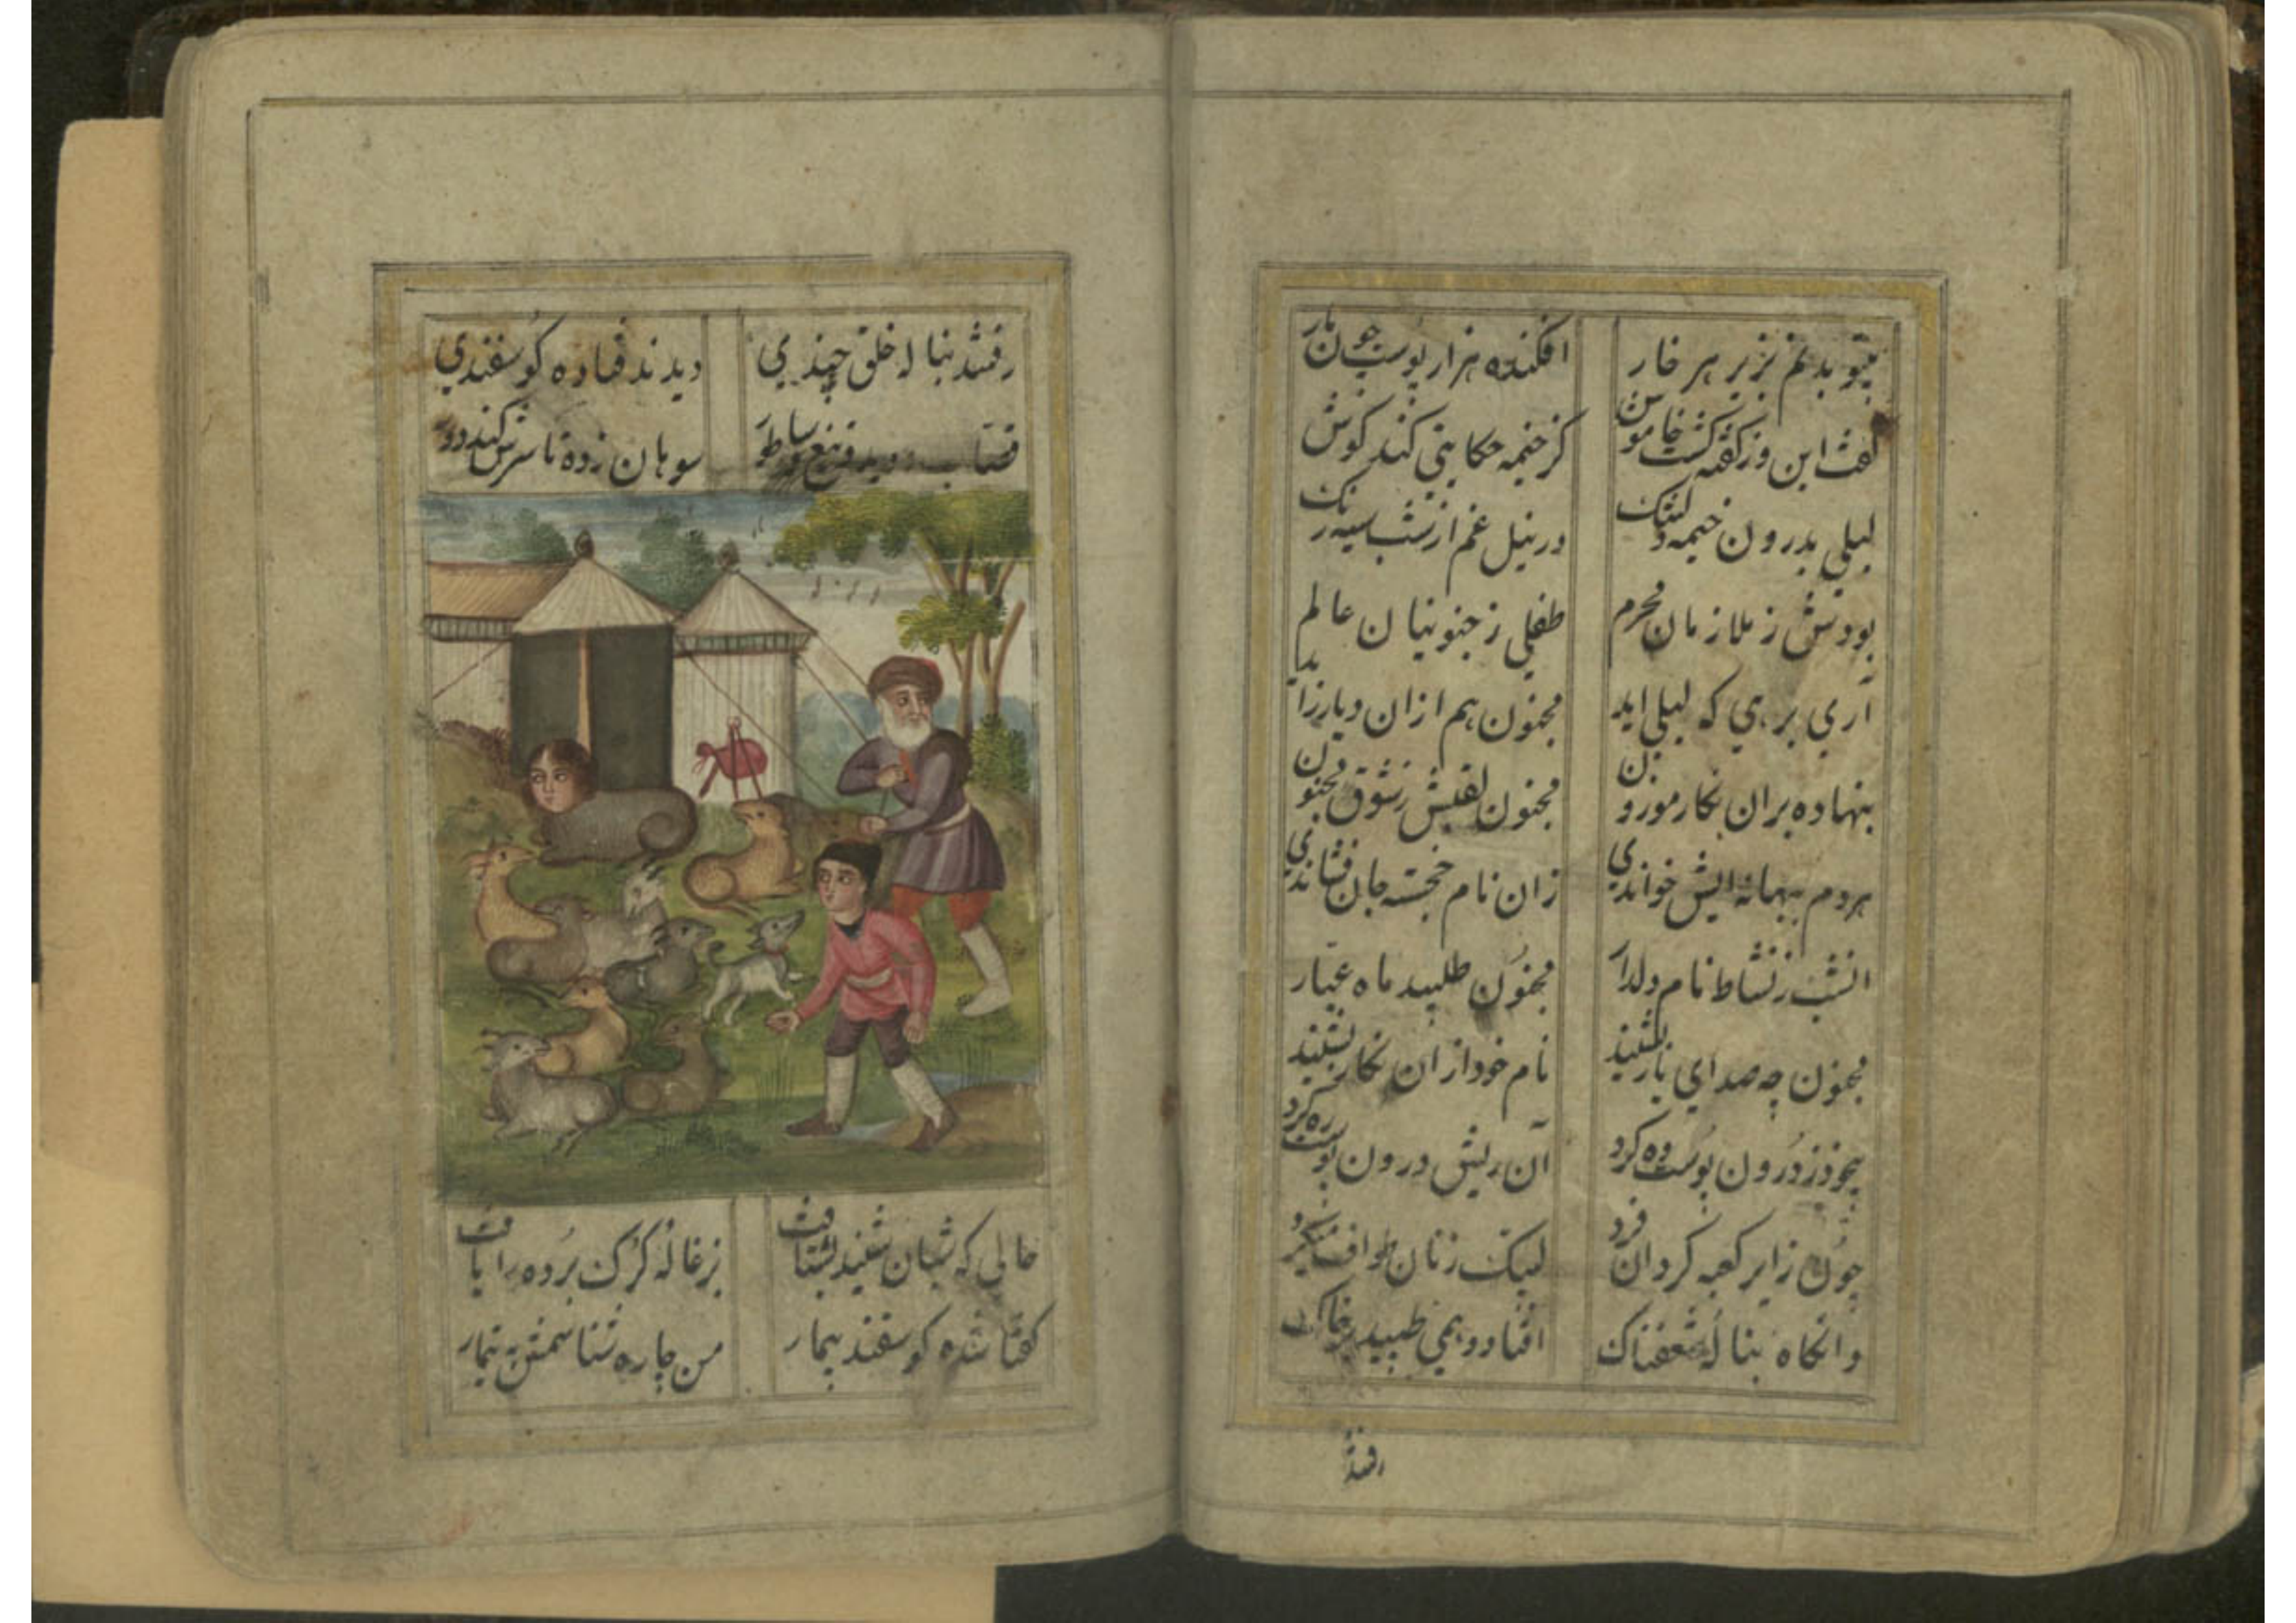 بیتو بدنم بزیر هر خار افکنده هزار پوست چون مار
گفت این وز گفته گشت خاموش کز خیمه حکایتی کند گوش
لیلی بدرون خیمه دلتنک در نیل غم از شب سیه رنک
بودش ز ملازمان محرم طفلی ز جنونیان عالم
آری بر.ی که لیلی اید مجنون هم ازان دیار زاید
بنهاده بران نکار موزون مجنون لقبش ز شوق مجنون
هردم ببهانه ایش خواندی زان نام خجسته جان فشاندی
انشب ز نشاط نام دلدار مجنون طلبید ماه عیار
مجنون چه صدای یار بشنید نام خود ازان نکار بشنید
بیخود ز درون پوست وه کرد آن ریش درون پوست ره کرد
چون زایر کعبه کردان فرد لبیک زنان طواف میکرد
وانکاه بناله شغفناک افتاد و همی طپید بر خاک
رفتند
رفتند بناله خلق چندی دیدند فتاده کوسفندی
قصاب دوید و تیغ ساطور سوهان زده تا سرش کند دور
حالی که شبان شنید بشتافت بزغاله کرک برده را یافت
گفتا شده کوسفند بیمار من چاره شناسمش به تیمار